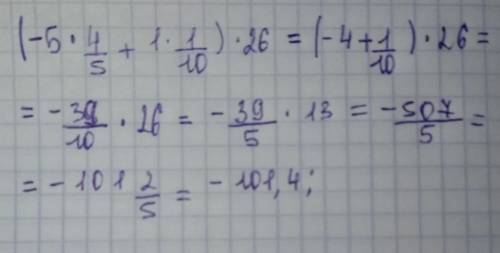 (-5 · 4/5 + 1 · 1/10) · 26 = (-4 + 1/10) · 26 =
= -39/10 · 26 = -39/5 · 13 = -507/5 =
= -101 2/5 = -101,4;